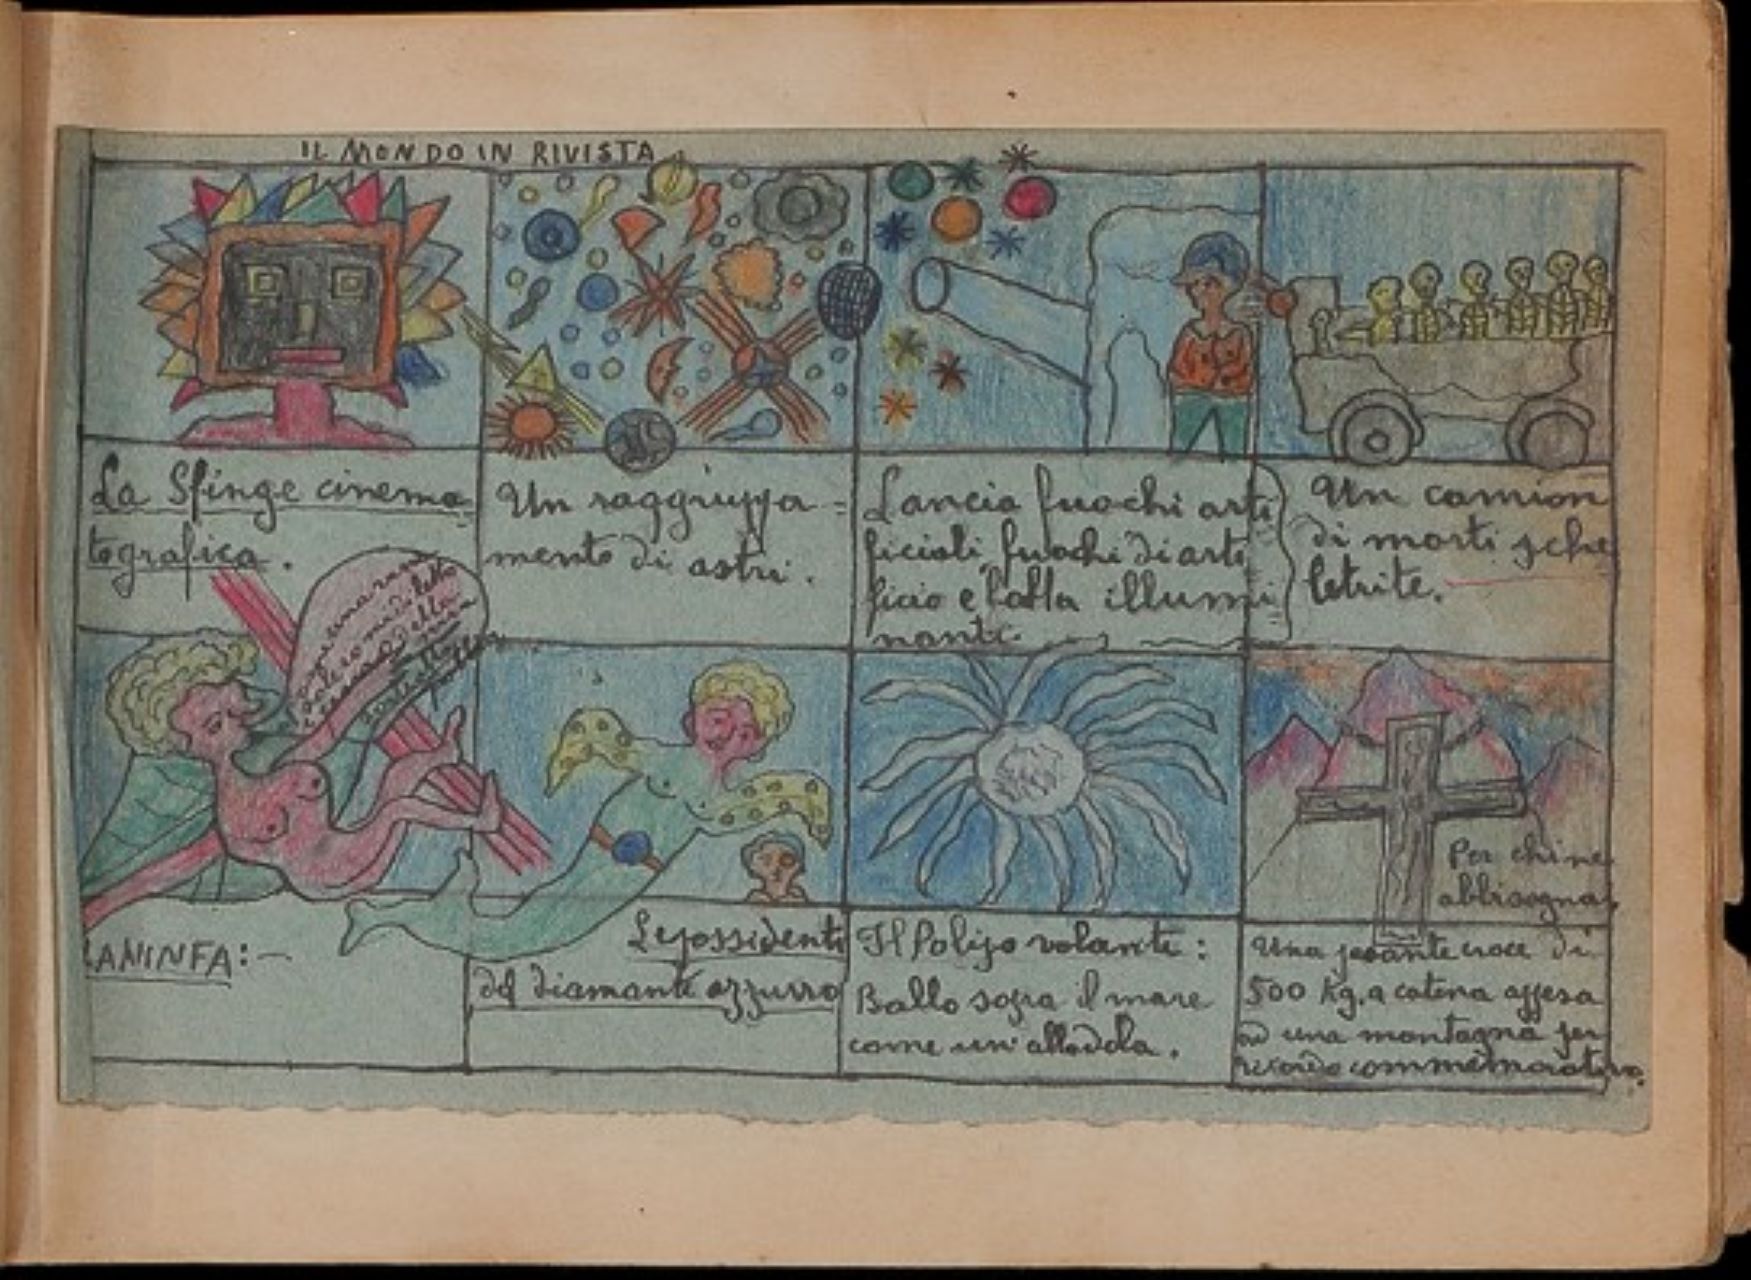 IL MONDO IN RIVISTA
La Sfinge cinema
tografica.
Un raggruppa=
mento di astri.
Lancia fuochi arti
ficiali, fuochi di arti
ficio e palla illumi
nanti.
Un camion
di morti sche
letrite.
LA NINFA:-
Le possidenti
del diamante azzurro
Il Polipo volante:
Ballo sopra il mare
come un'allodola.
Per chi ne
abbisogna.
Una pesante croce di
500 Kg. a catena appesa
ad una montagna per
ricordo commemorativo.